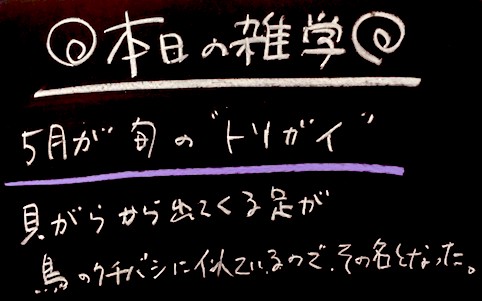 本日の雑学
5月が旬の"トリガイ"
貝がらから出てくる足が
鳥のクチバシに似ているので、その名となった。